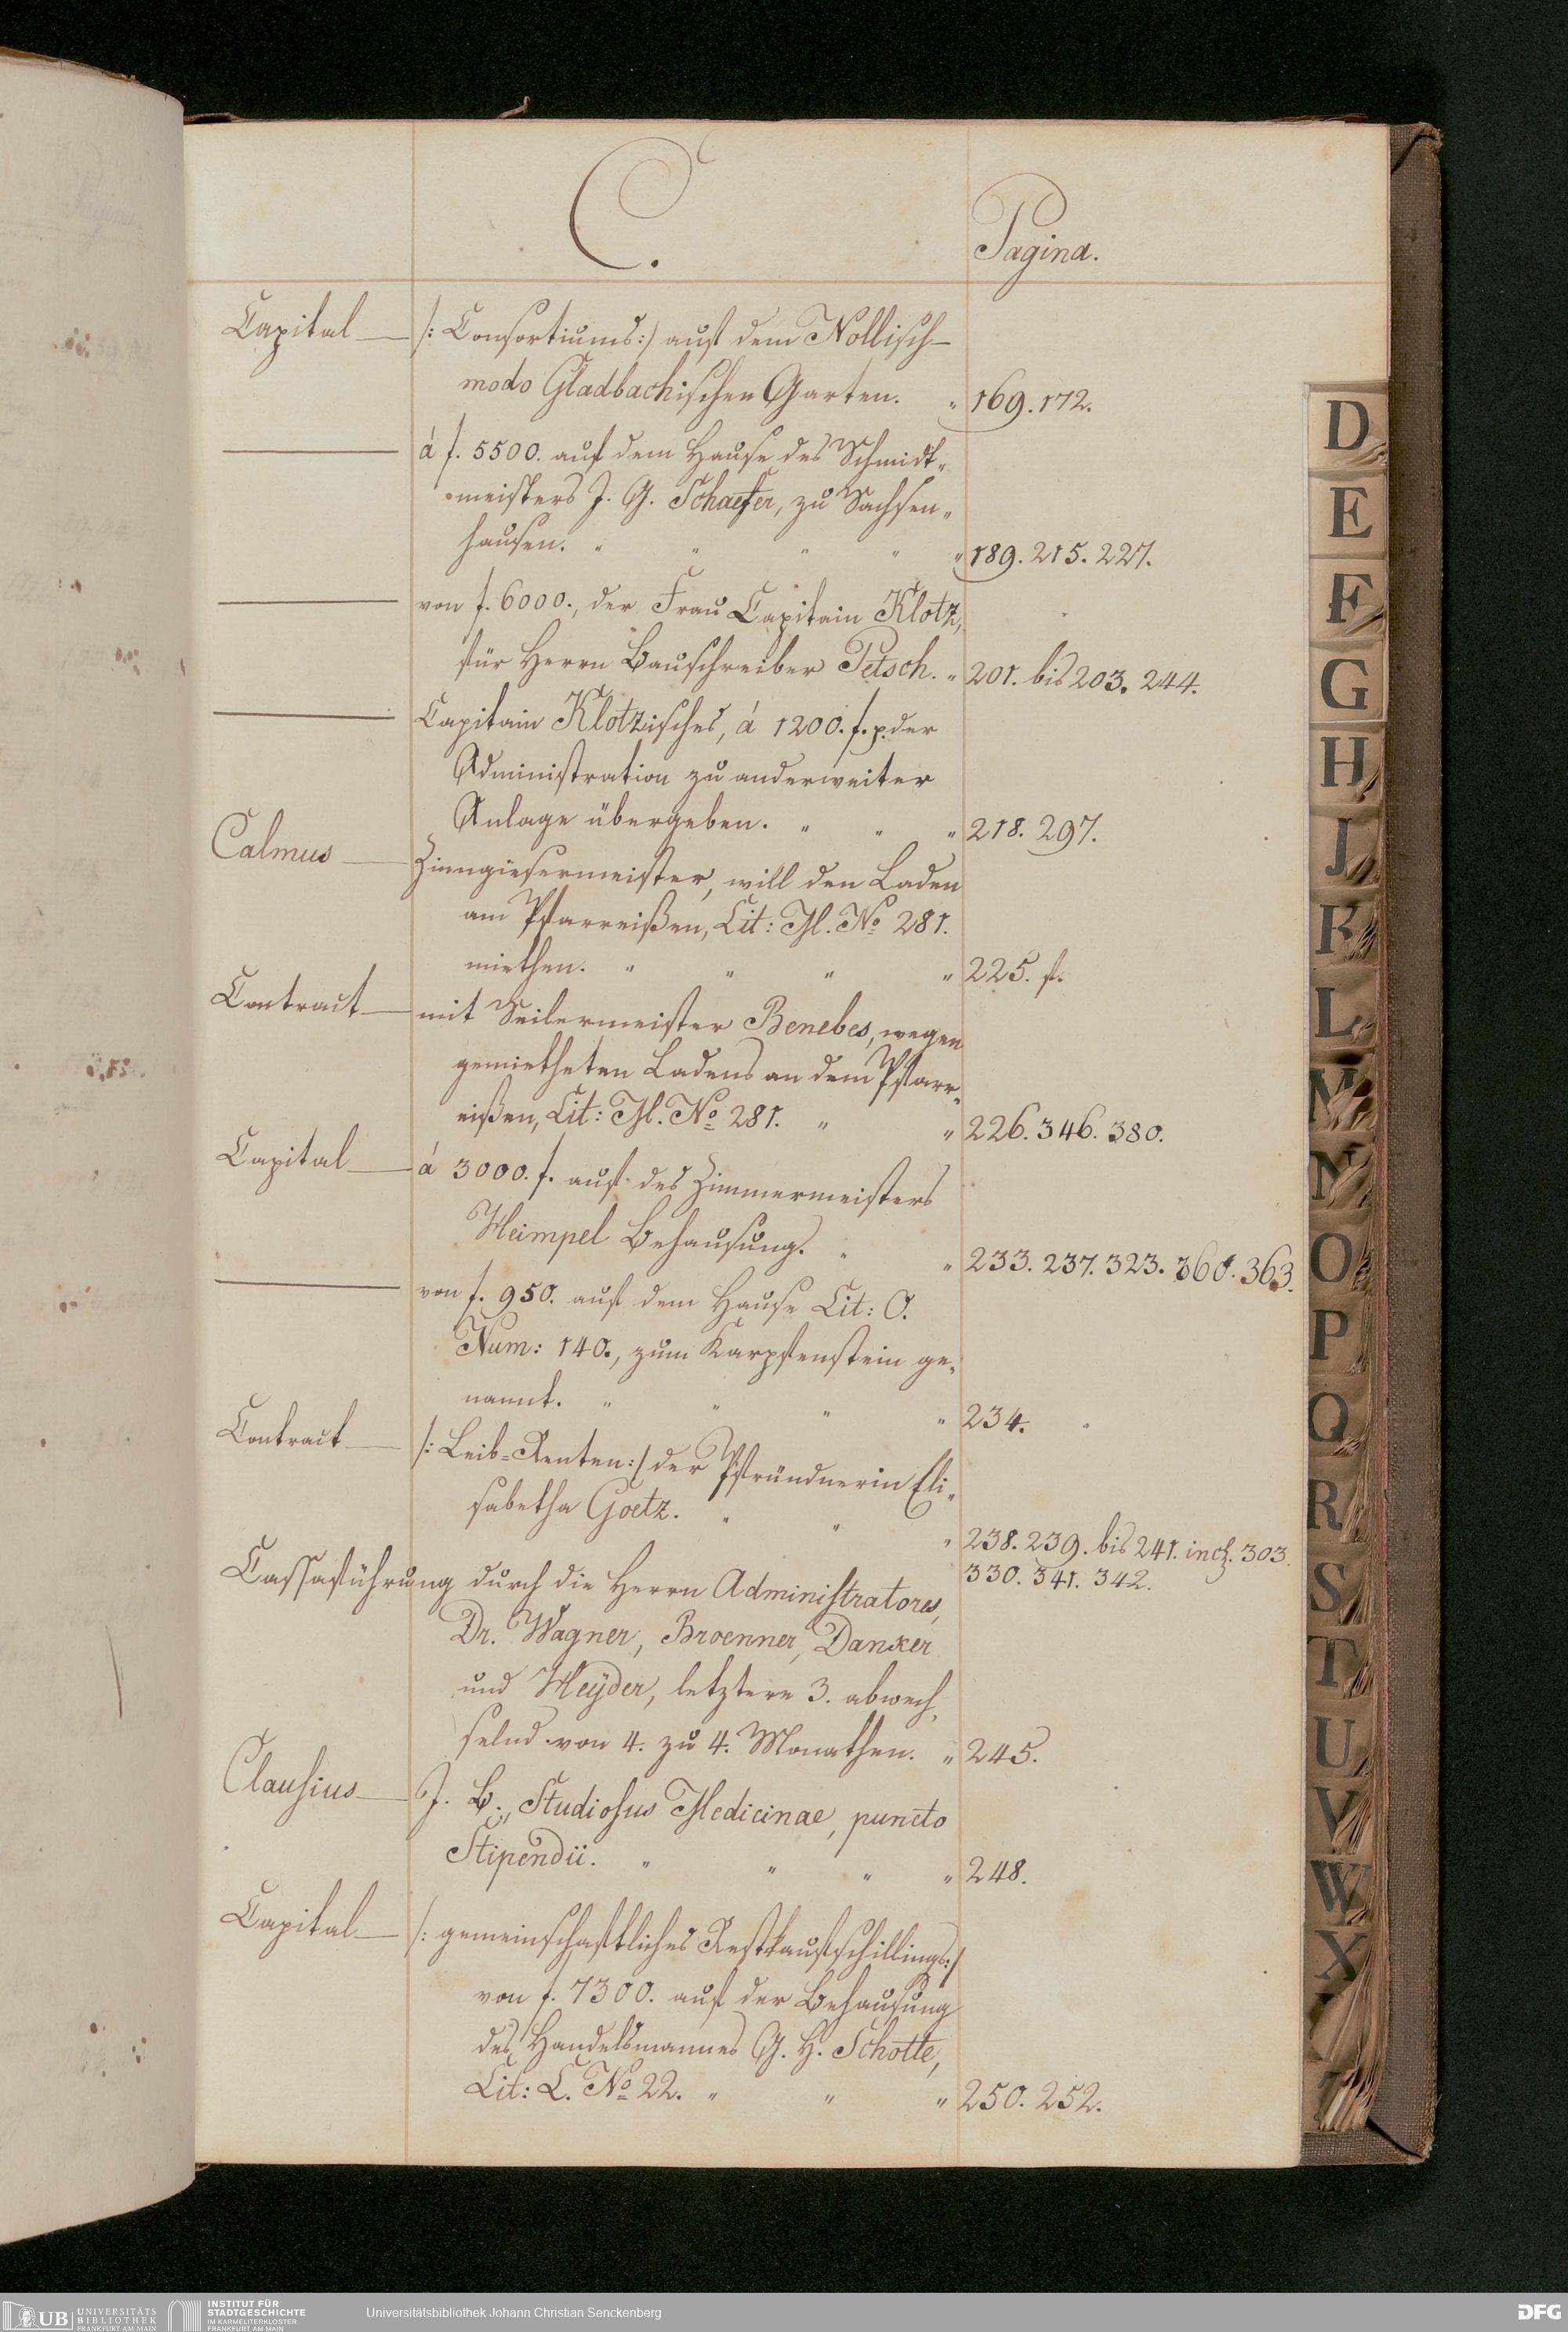 C.
Pagina.
Capital — /: Consortiums:/ auf dem Nollisch-
modo Gladbachischen Garten. " 169. 172.
— à f. 5500. auf dem Hause des Schmidt-
meisters J. G. Schaefer, zu Sachsen-
hausen. " " " " " 189. 215. 227.
— von f. 6000., der Frau Capitain Klotz,
für Herrn Bauschreiber Petsch. " 201. bis 203. 244.
— Capitain Klotzisches, à 1200. f. p. der
Administration zu anderweiter
Anlage übergeben. " " " 218. 297.
Calmus — Zinngiesermeister, will den Laden
am Pfarreißen, Lit: M. No 281.
miethen. " " " " 225. f.
Contract — mit Seilermeister Benebes, wegen
gemietheten Ladens an dem Pfarr-
eißen, Lit: M. No 281. " " 226. 346. 380.
Capital — à 3000. f. auf des Zimmermeisters
Heimpel Behausung. " " 233. 237. 323. 360. 363.
— von f. 950. auf dem Hause Lit: O.
Num: 140., zum Karpfenstein ge-
nannt. " " " " 234.
Contract — /: Leib-Renten:/ der Pfründnerin Eli-
sabetha Goetz. " " " 238. 239. bis 241. incl. 303.
330. 341. 342.
Cassaführung durch die Herrn Administratores,
Dr. Wagner, Broenner, Danker
und Meÿder, letztere 3. abwech-
selnd von 4. zu 4. Monathen. " 245.
Clausius — J. B., Studiosus Medicinae, puncto
Stipendii. " " " " 248.
Capital — /: gemeinschaftliches Restkaufschillings:/
von f. 7300. auf der Behausung
des Handelsmannes G. H. Schotte,
Lit: L. No 22. " " " 250. 252.
D
E
F
G
H
J
K
L
M
N
O
P
Q
R
S
T
U
V
W
X
UB UNIVERSITÄTS
BIBLIOTHEK
FRANKFURT AM MAIN
INSTITUT FÜR
STADTGESCHICHTE
IM KARMELITERKLOSTER
FRANKFURT AM MAIN
Universitätsbibliothek Johann Christian Senckenberg
DFG